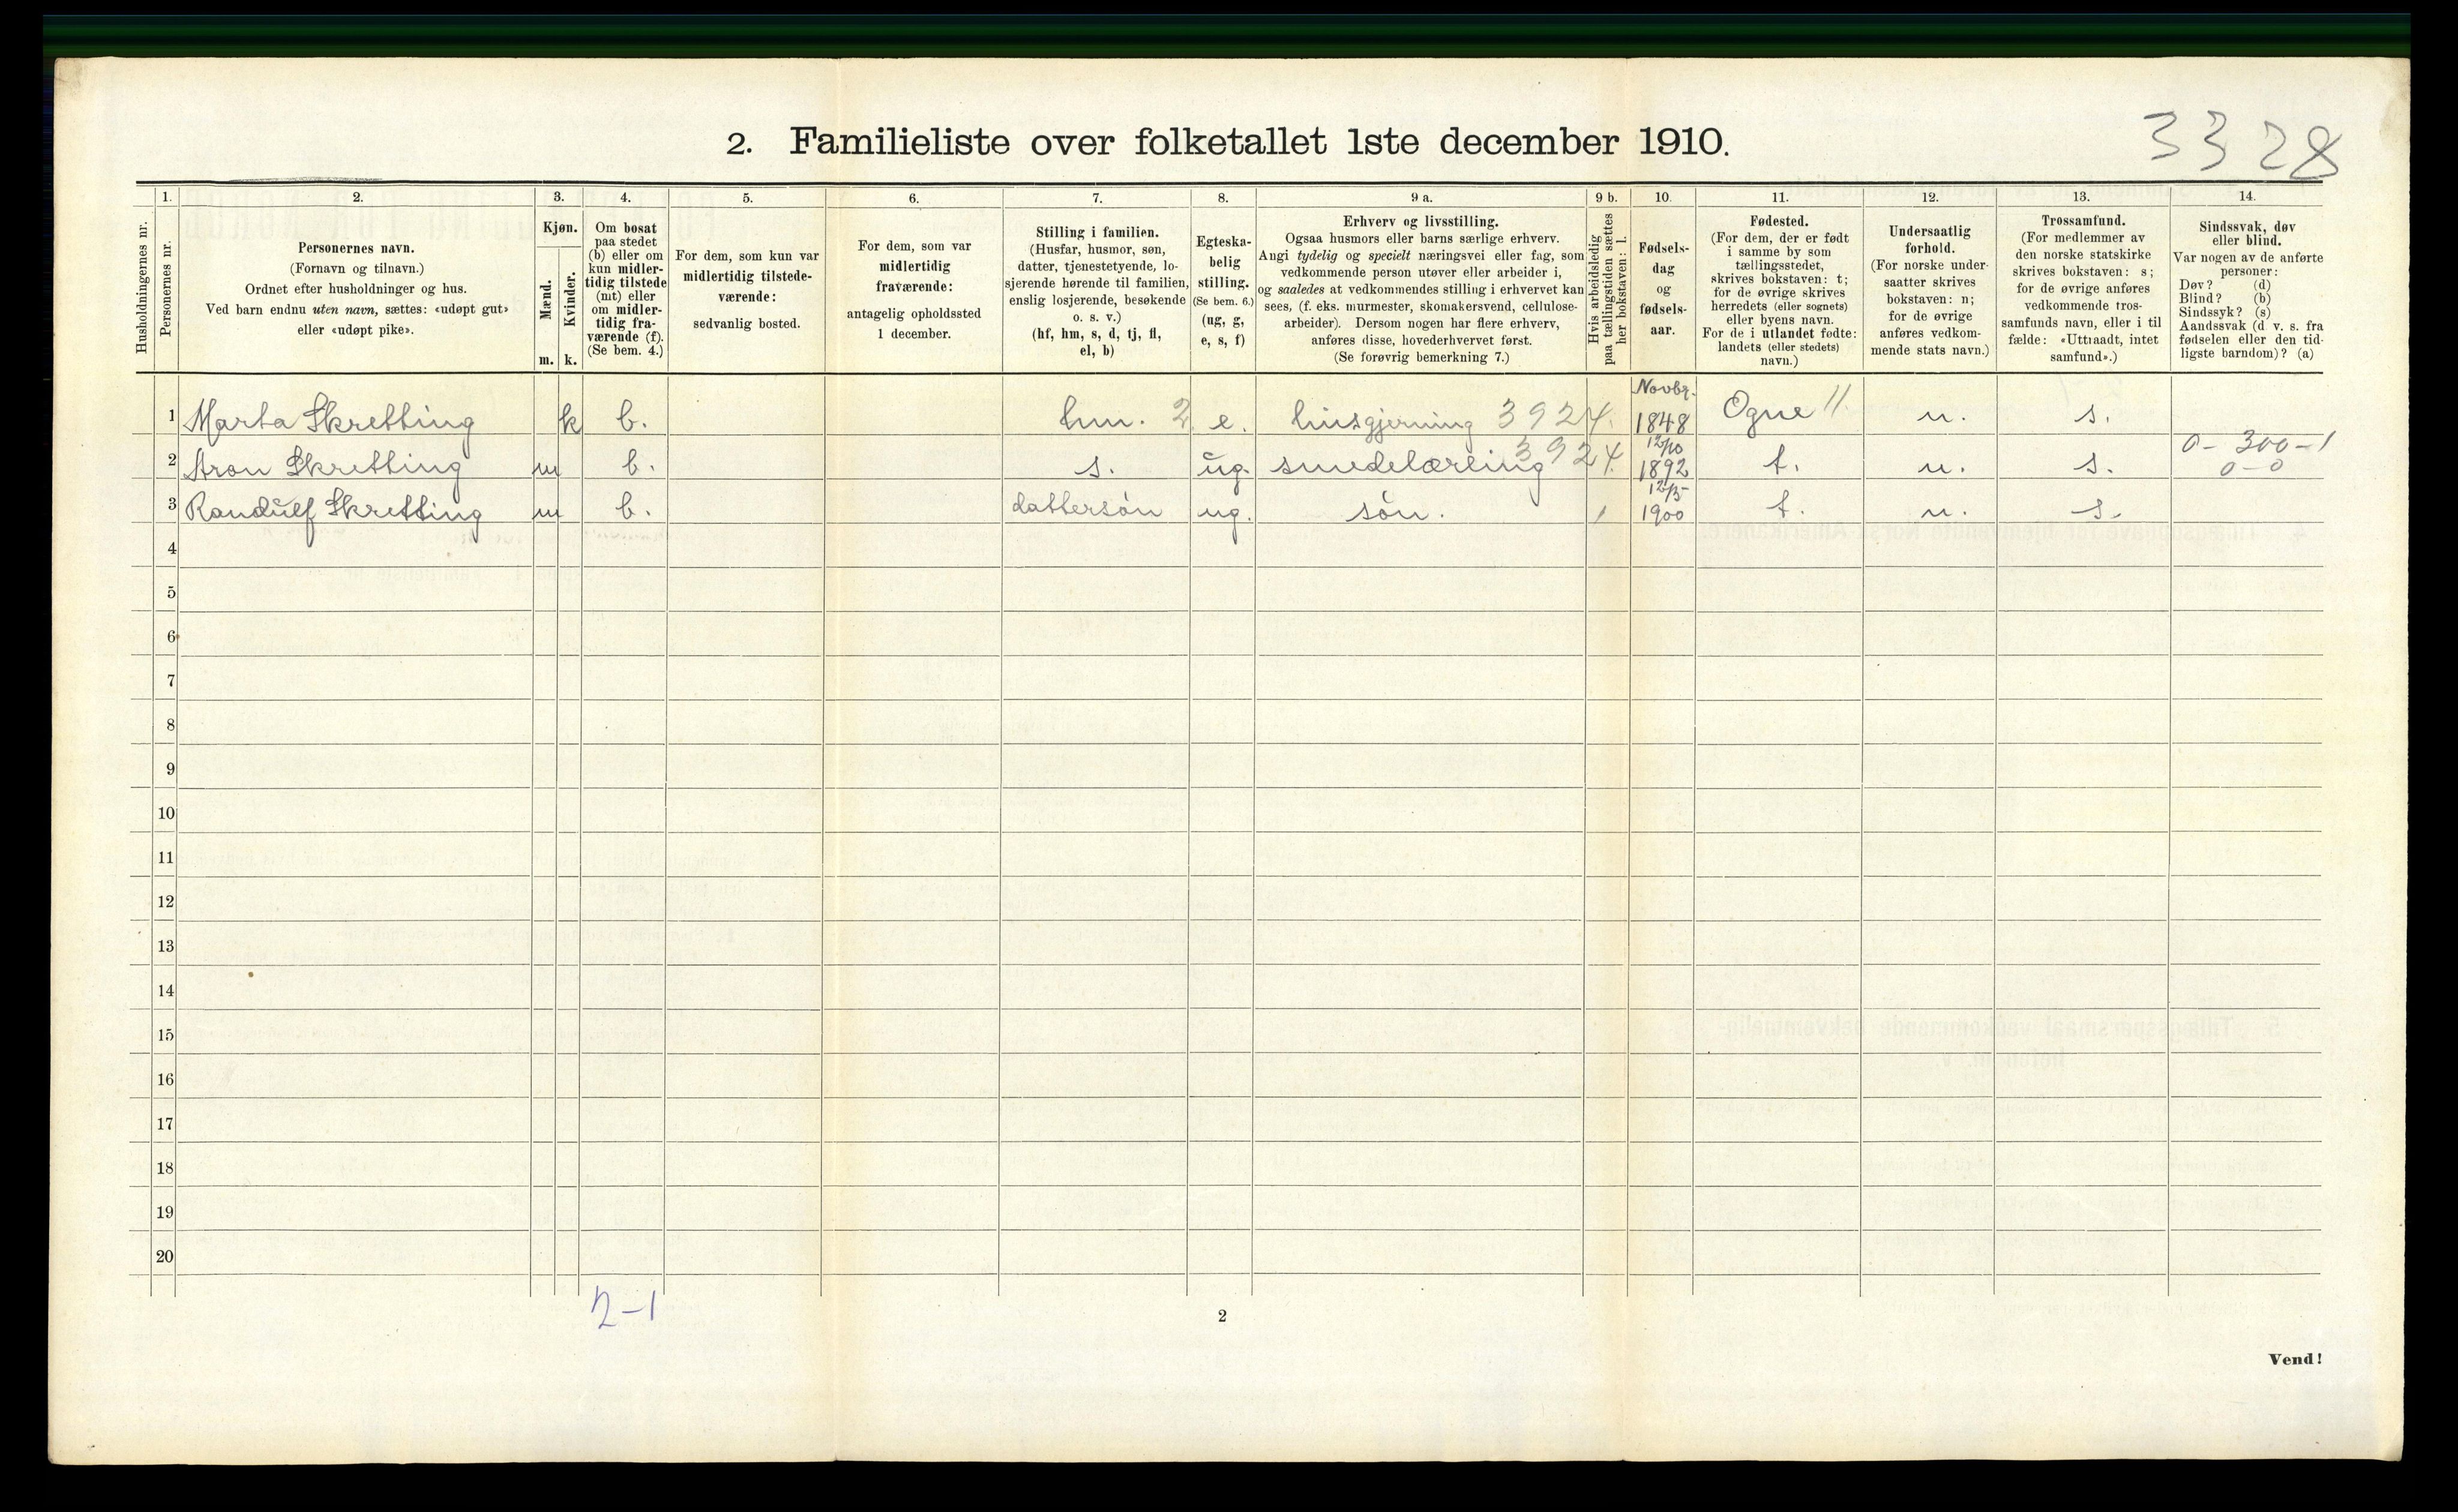 3328
2. Familieliste over folketallet 1ste december 1910.
1. 2. 3. 4. 5. 6. 7. 8. 9 a. 9 b. 10. 11. 12. 13. 14.
Husholdningernes nr.
Personernes nr.
Personernes navn.
(Fornavn og tilnavn.)
Ordnet efter husholdninger og hus.
Ved barn endnu uten navn, sættes: «udøpt gut»
eller «udøpt pike».
Kjøn.
Mænd.
m.
Kvinder.
k.
Om bosat
paa stedet
(b) eller om
kun midler-
tidig tilstede
(mt) eller
om midler-
tidig fra-
værende (f).
(Se bem. 4.)
For dem, som kun var
midlertidig tilstede-
værende:
sedvanlig bosted.
For dem, som var
midlertidig
fraværende:
antagelig opholdssted
1 december.
Stilling i familien.
(Husfar, husmor, søn,
datter, tjenestetyende, lo-
sjerende hørende til familien,
enslig losjerende, besøkende
o. s. v.)
(hf, hm, s, d, tj, fl,
el, b)
Egteska-
belig
stilling.
(Se bem. 6.)
(ug, g,
e, s, f)
Erhverv og livsstilling.
Ogsaa husmors eller barns særlige erhverv.
Angi tydelig og specielt næringsvei eller fag, som
vedkommende person utøver eller arbeider i,
og saaledes at vedkommendes stilling i erhvervet kan
sees, (f. eks. murmester, skomakersvend, cellulose-
arbeider). Dersom nogen har flere erhverv,
anføres disse, hovederhvervet først.
(Se forøvrig bemerkning 7.)
Hvis arbeidsledig
paa tællingstiden sættes
her bokstaven: l.
Fødsels-
dag
og
fødsels-
aar.
Fødested.
(For dem, der er født
i samme by som
tællingsstedet,
skrives bokstaven: t;
for de øvrige skrives
herredets (eller sognets)
eller byens navn.
For de i utlandet fødte:
landets (eller stedets)
navn.)
Undersaatlig
forhold.
(For norske under-
saatter skrives
bokstaven: n;
for de øvrige
anføres vedkom-
mende stats navn.)
Trossamfund.
(For medlemmer av
den norske statskirke
skrives bokstaven: s;
for de øvrige anføres
vedkommende tros-
samfunds navn, eller i til
fælde: «Uttraadt, intet
samfund».)
Sindssvak, døv
eller blind.
Var nogen av de anførte
personer:
Døv? (d)
Blind? (b)
Sindssyk? (s)
Aandssvak (d v. s. fra
fødselen eller den tid-
ligste barndom)? (a)
1 Marta Skretting k b. hm. 2 e. husgjerning 3924. Novbr. 1848 Ogne 11 n. s.
2 Aron Skretting m b. s. ug. smedelærling 3924. 12/10 1892 t. n. s. 0-300-1 0-0
3 Randulf Skretting m b. dattersøn ug. søn. 1 12/5 1900 t. n. s.
4
5
6
7
8
9
10
11
12
13
14
15
16
17
18
19
20
2-1
2
Vend!